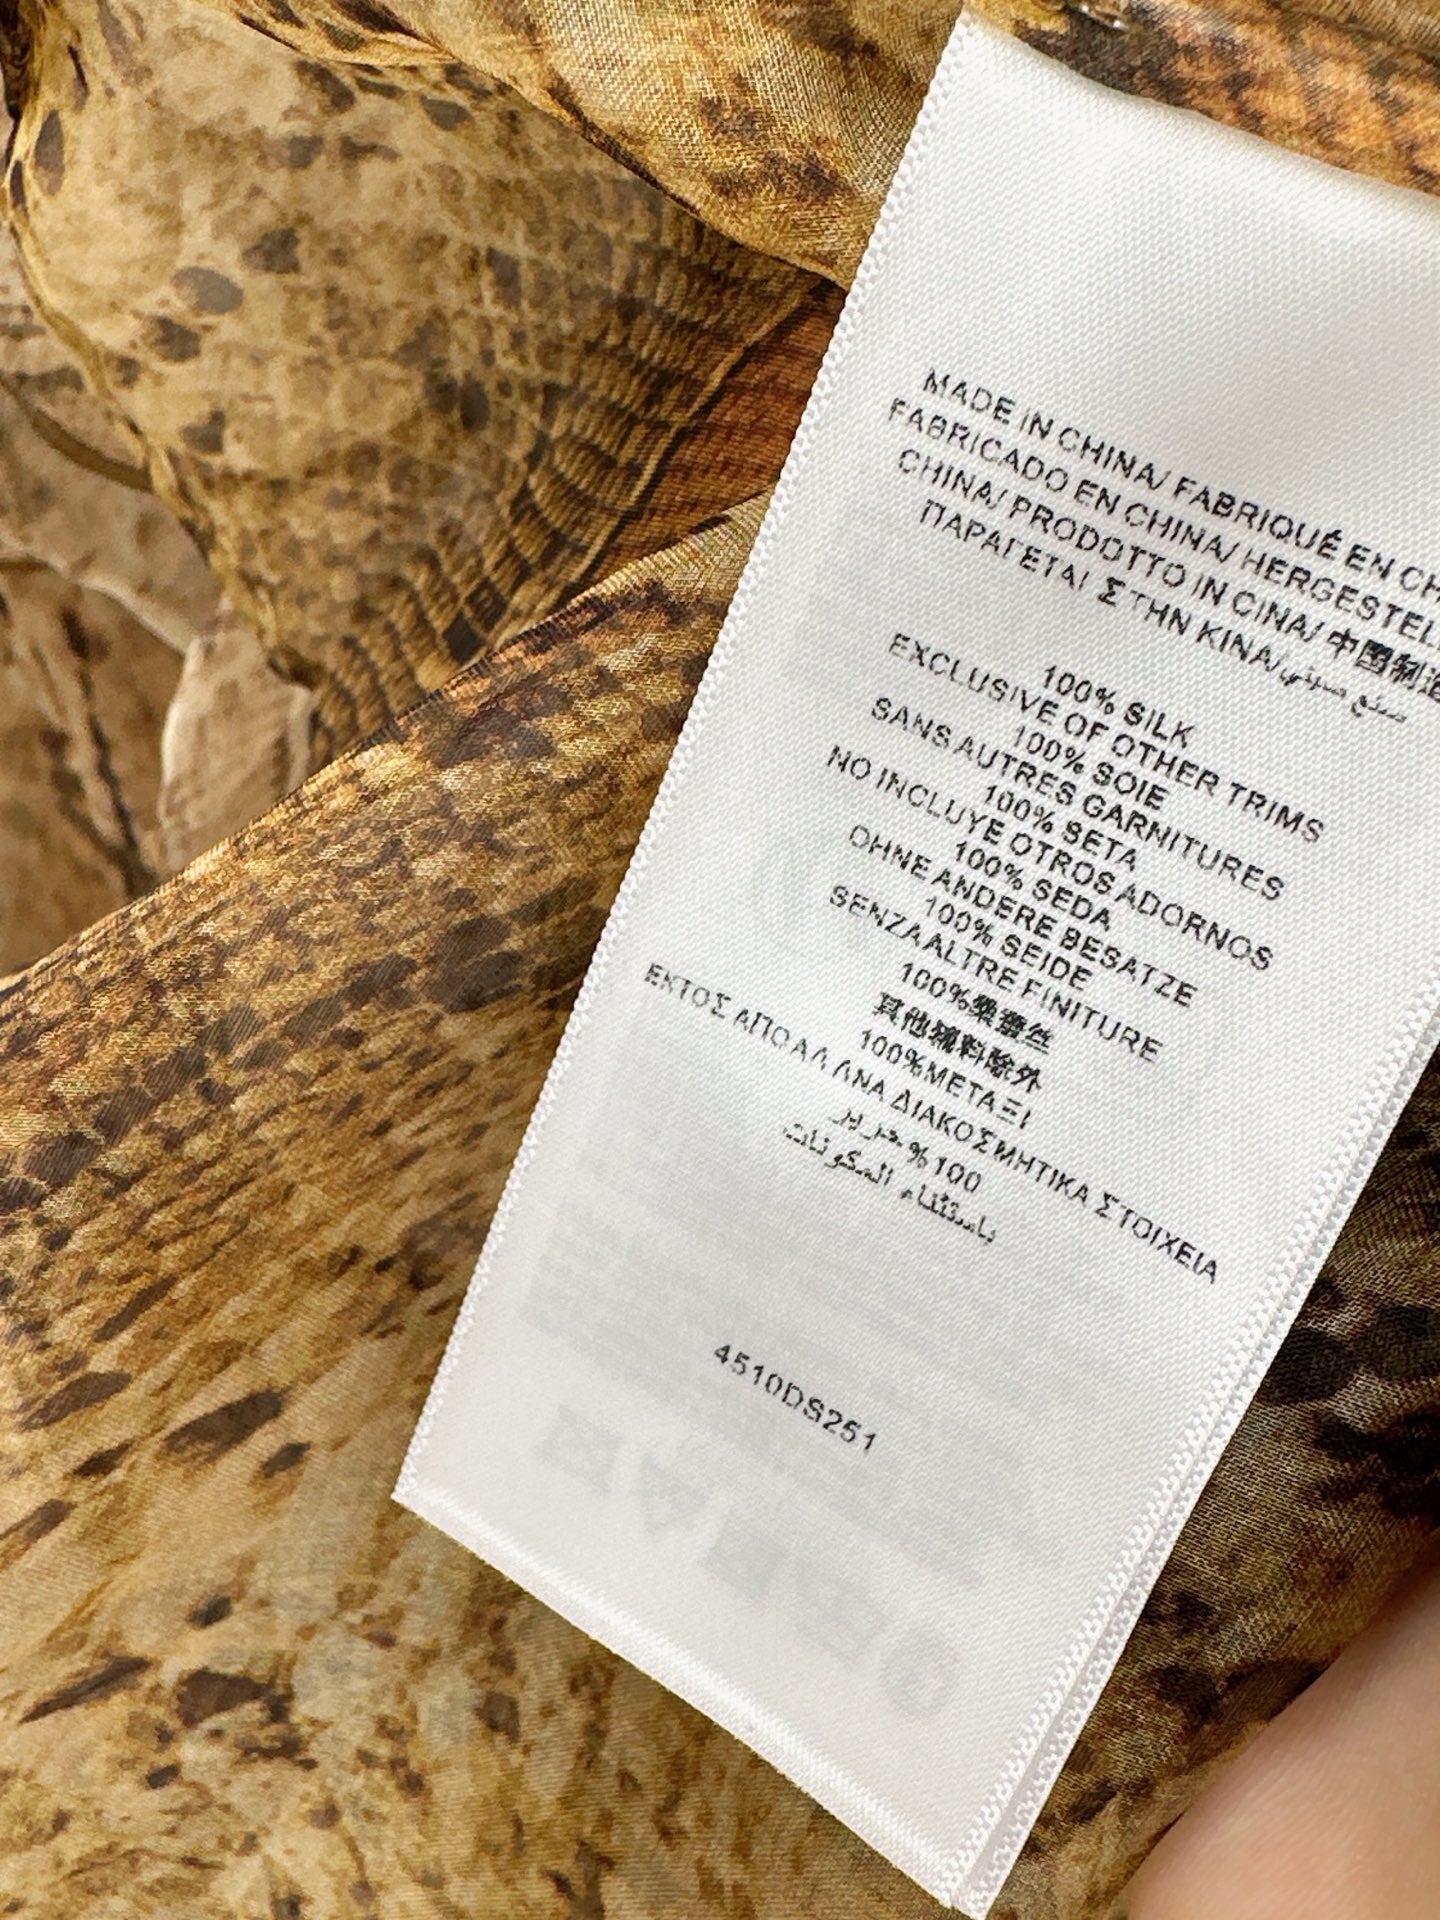 MADE IN CHINA/ FABRIQUÉ EN
FABRICADO EN CHINA/
CHINA/ PRODOTTO IN CINA/ 中国制造
ΠΑΡΑΓΕΤΑΙ ΣΤΗΝ ΚΙΝΑ/ صنع صيني
100% SILK
EXCLUSIVE OF OTHER TRIMS
100% SOIE
SANS AUTRES GARNITURES
100% SETA
NO INCLUYE OTROS ADORNOS
100% SEDA
OHNE ANDERE BESATZE
100% SEIDE
SENZA ALTRE FINITURE
100%桑蚕丝
其他辅料除外
100%ΜΕΤΑΞΙ
ΕΚΤΟΣ ΑΠΟ ΑΛΛΝΑ ΔΙΑΚΟΣΜΗΤΙΚΑ ΣΤΟΙΧΕΙΑ
100% حرير
باستثناء المكونات
4510DS251